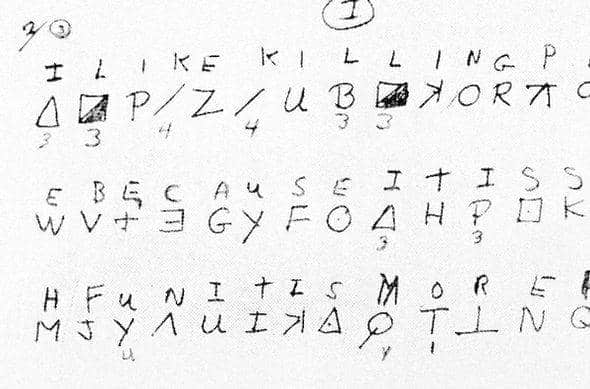 I
I L I K E K I L L I N G P
△ ◪ P / Z / U B ◪ ꓘ O R ⊼
3 3 4 4 3 3
E B E C A U S E I T I S S
W V + Ǝ G Y F ⊙ △ H P ⊡ K
3 3
H F U N I T I S M O R E
M J Y Λ U I ꓘ △ ⌕ T ⊥ N Q